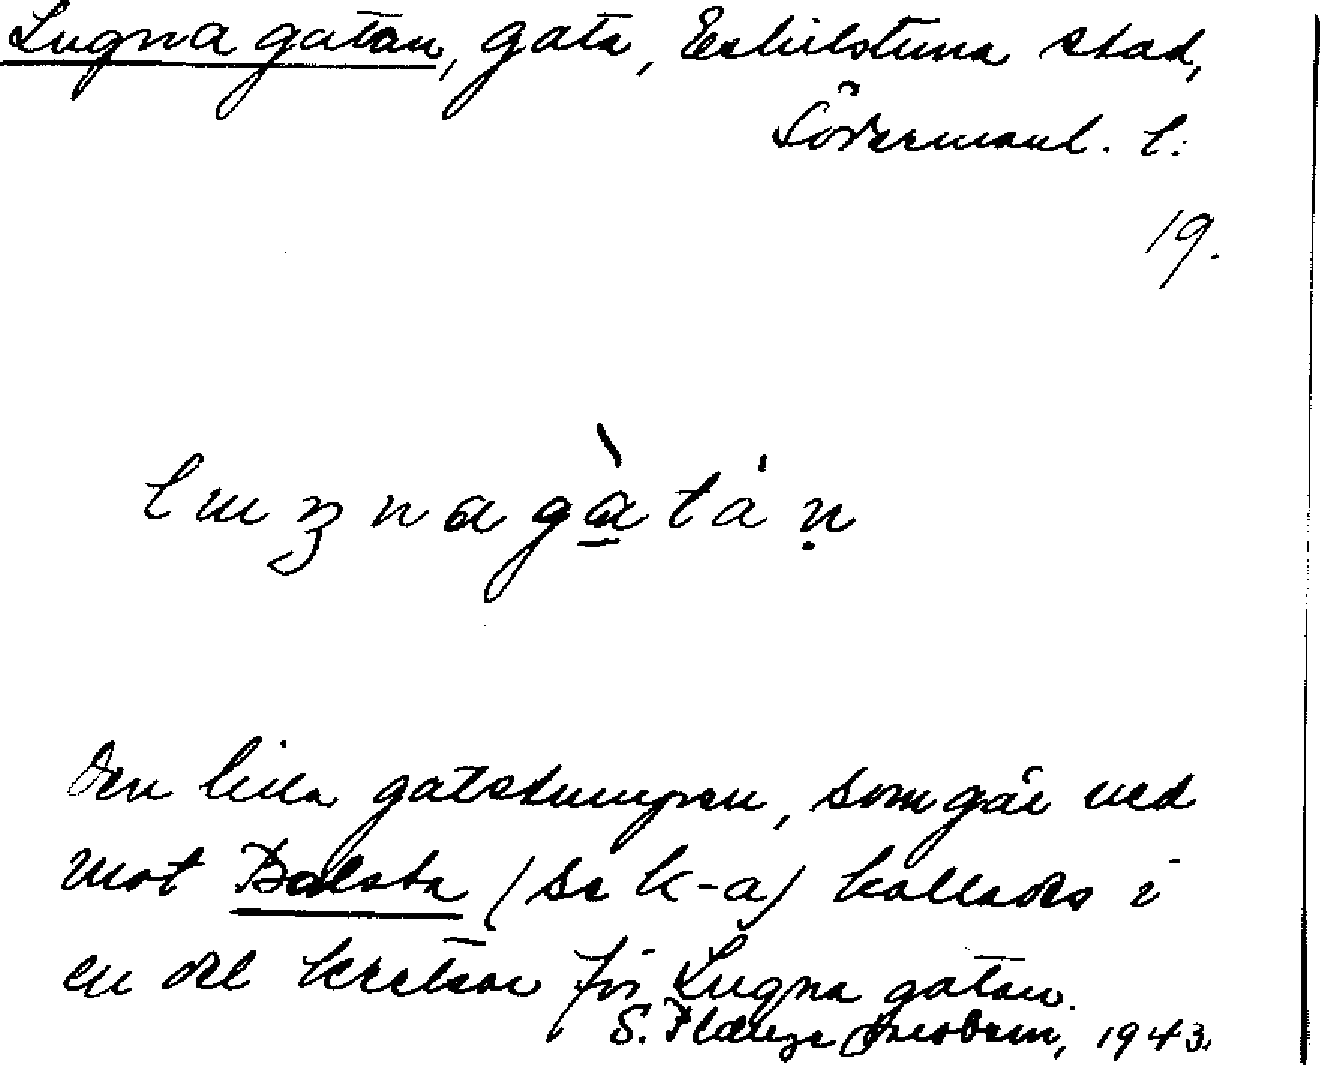 Lugna gatan, gata, Eskilstuna stad,
Södermanl. l.
19.
luznagàtán
Den lilla gatstumpen, som går ned
mot Balsta (se k-a) kallades i
en del kretsar för Lugna gatan.
S. 1943.